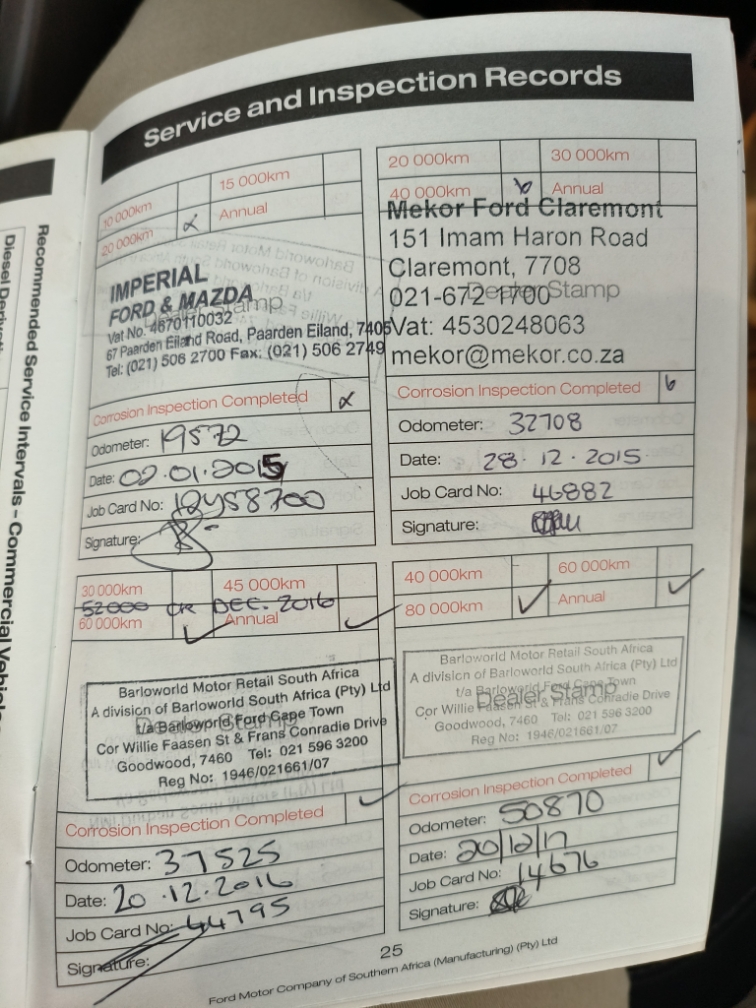 Service and Inspection Records
10 000km
15 000km
20 000km
Annual
IMPERIAL
FORD & MAZDA
Dealer Stamp
Vat No. 4670110032
67 Paarden Eiland Road, Paarden Eiland, 7405
Tel: (021) 506 2700 Fax: (021) 506 2749
Corrosion Inspection Completed
Odometer: 19572
Date: 02.01.2015
Job Card No:
Signature:
20 000km
30 000km
40 000km
Annual
Mekor Ford Claremont
151 Imam Haron Road
Claremont, 7708
Dealer Stamp
021-672 1700
Vat: 4530248063
mekor@mekor.co.za
Corrosion Inspection Completed
Odometer: 32708
Date: 28.12.2015
Job Card No: 46882
Signature:
30 000km
45 000km
52000 OR DEC. 2016
60 000km
Annual
Barloworld Motor Retail South Africa
A division of Barloworld South Africa (Pty) Ltd
t/a Barloworld Ford Cape Town
Dealer Stamp
Cor Willie Faasen St & Frans Conradie Drive
Goodwood, 7460 Tel: 021 596 3200
Reg No: 1946/021661/07
Corrosion Inspection Completed
Odometer: 37525
Date: 20.12.2016
Job Card No: 44795
Signature:
40 000km
60 000km
80 000km
Annual
Barloworld Motor Retail South Africa
A division of Barloworld South Africa (Pty) Ltd
t/a Barloworld Ford Cape Town
Dealer Stamp
Cor Willie Faasen St & Frans Conradie Drive
Goodwood, 7460 Tel: 021 596 3200
Reg No: 1946/021661/07
Corrosion Inspection Completed
Odometer: 50870
Date: 20/12/17
Job Card No: 14676
Signature:
25
Ford Motor Company of Southern Africa (Manufacturing) (Pty) Ltd
Recommended Service Intervals – Commercial Vehicles